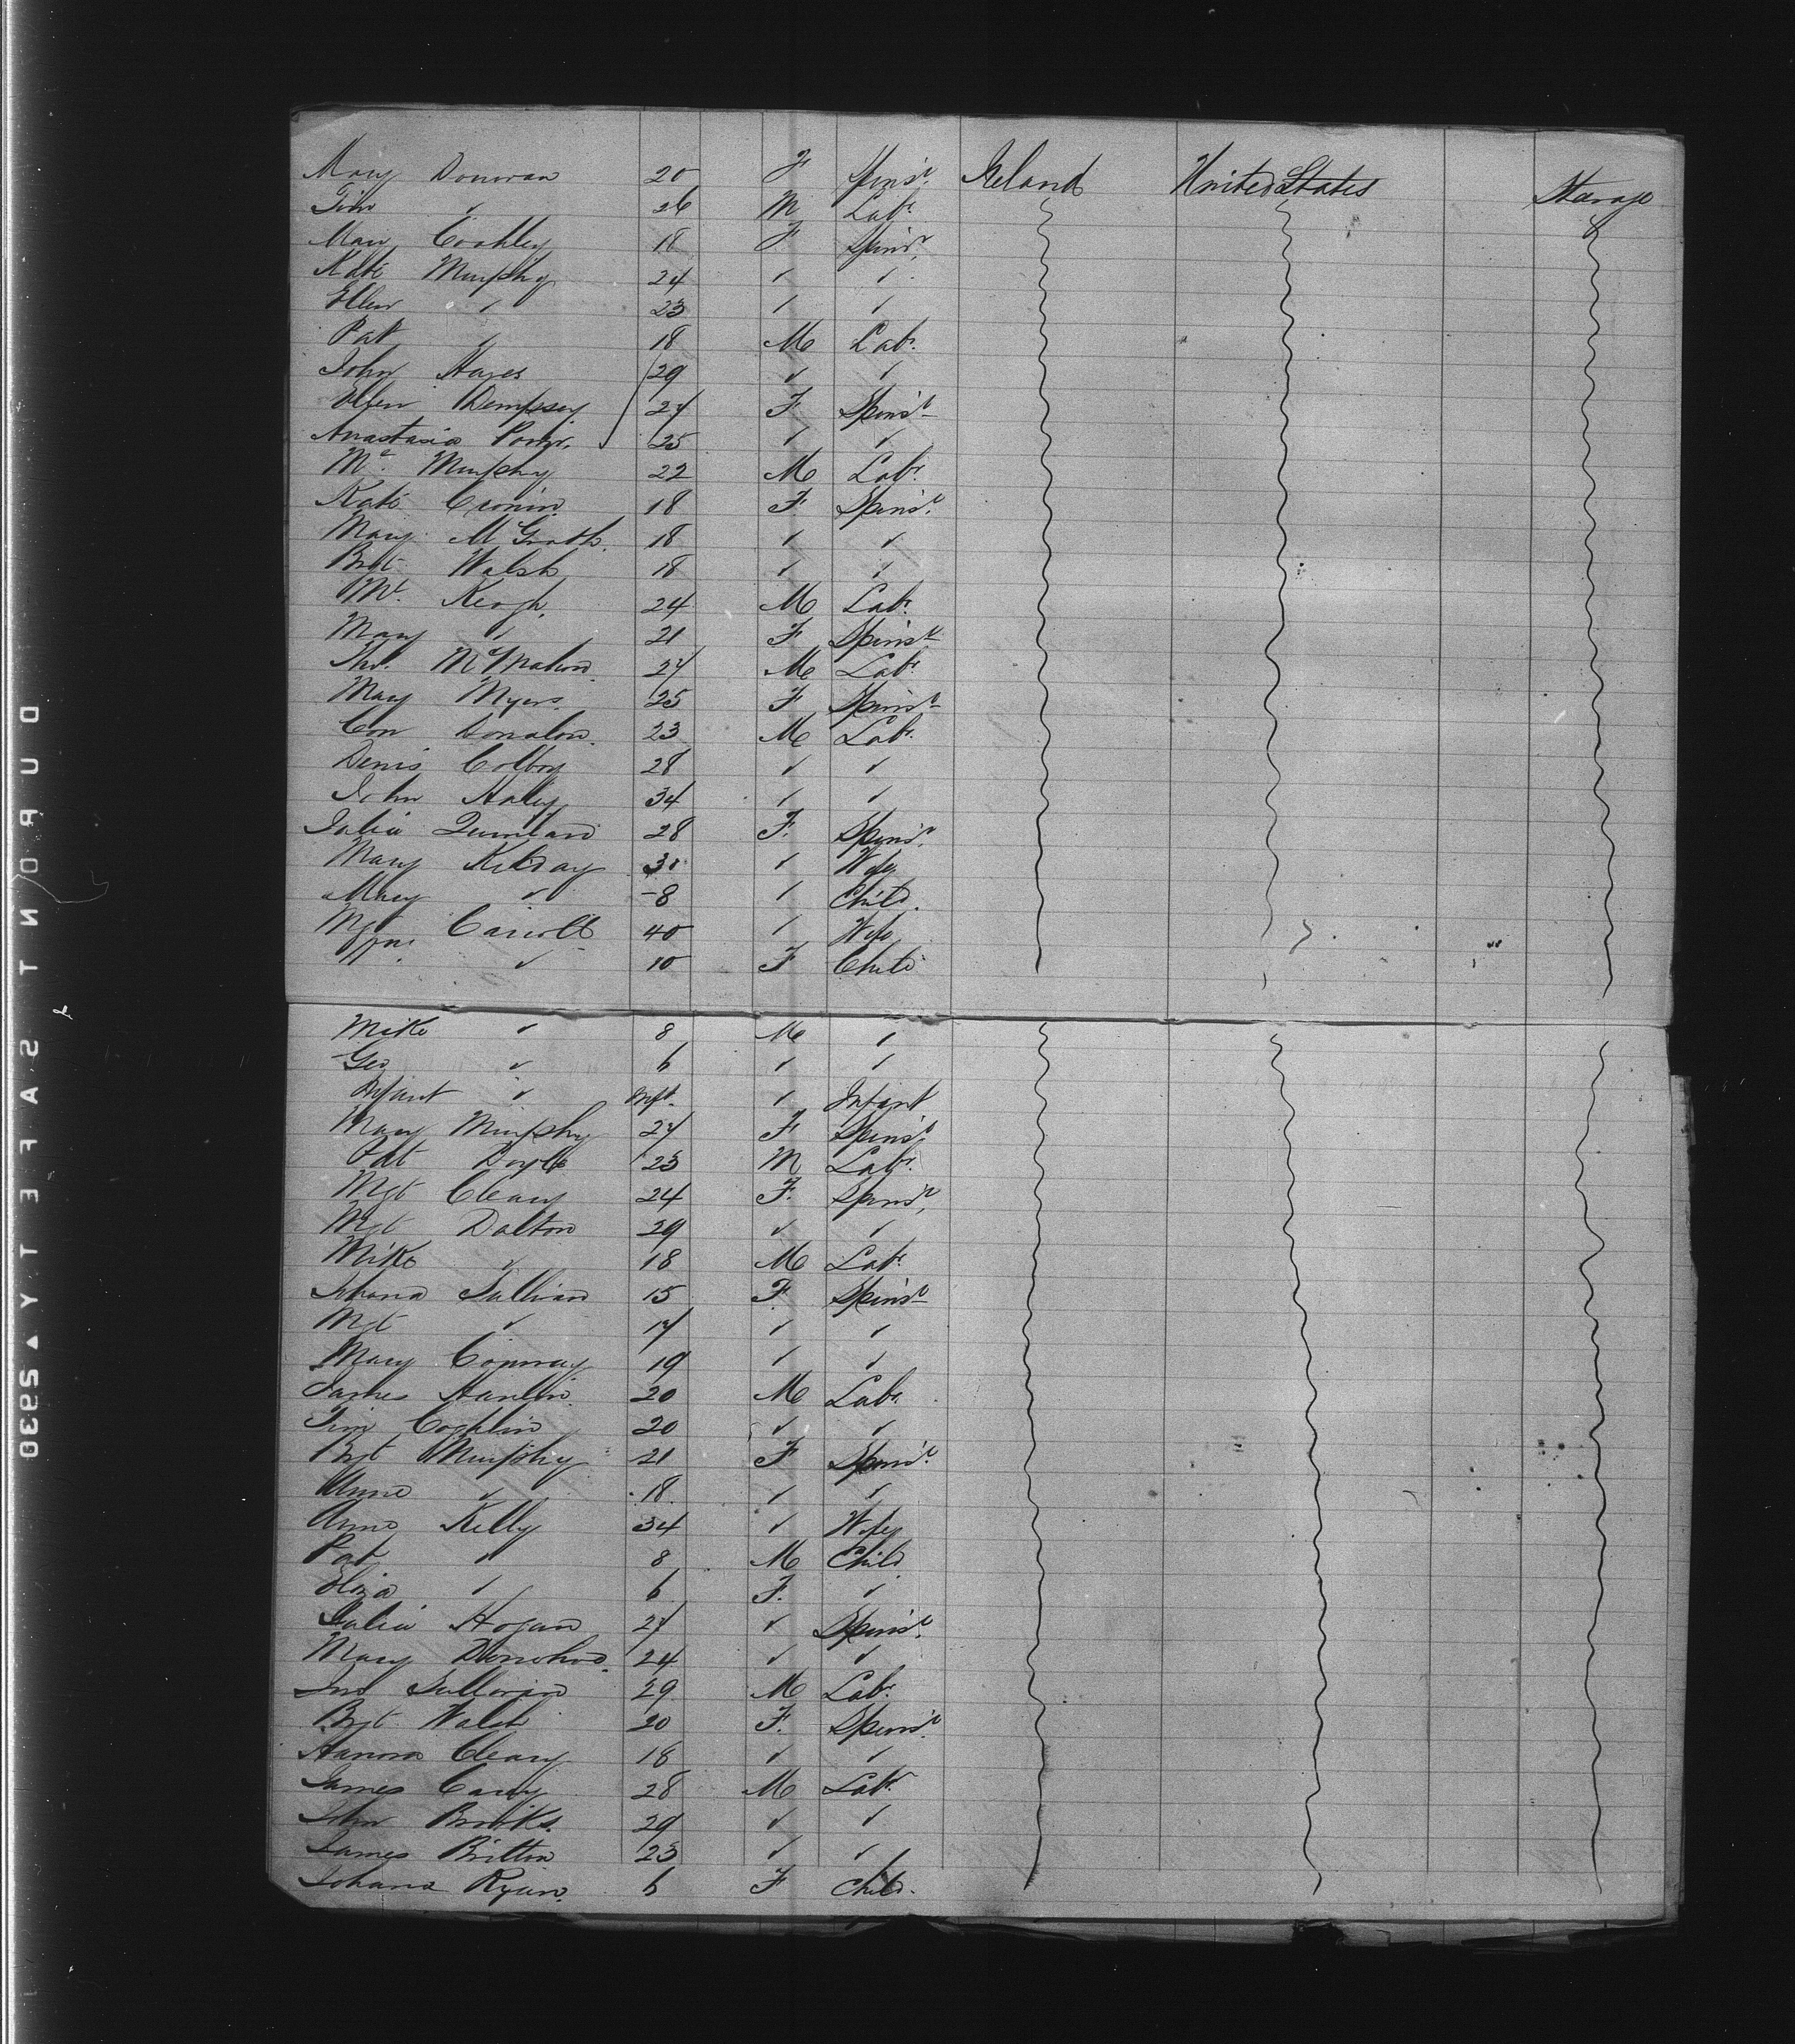 Mary Donovan 20 F Spinsr. Ireland United States Steerage
Tim " 26 M Labr.
Mary Coakley 18 F Spinsr.
Kate Murphy 24 " "
Ellen " 23 " "
Pat " 18 M Labr.
John Hayes 29 " "
Ellen Dempsey 27 F Spinsr
Anastasia Power 25 " "
Ml. Murphy 22 M Labr.
Kate Cronin 18 F Spinsr.
Mary McGrath 18 " "
Bgt Walsh 18 " "
Ml. Keogh 24 M Labr.
Mary " 21 F Spinsr
Thos. McMahon 27 M Labr.
Mary Myers 25 F Spinsr
Con 23 M Labr.
Denis 28 " "
John Haley 34 " "
Julia Quinlan 28 F. Spinsr.
Mary 30 " Wife
Mary " 8 " Child
Mgt Carroll 40 " Wife
" 10 F Child
Mike " 8 M "
Geo " 6 " "
Infant " Inft. " Infant
Mary Murphy 27 F Spinsr.
Pat Doyle 23 M Labr.
Mgt Cleary 24 F. Spinsr.
Mgt Dalton 29 " "
Mike " 18 M Labr.
Johana Sullivan 15 F Spinsr
Mgt " 17 " "
Mary Conway 19 " "
James Hanlin 20 M Labr.
Tim Coghlin 20 " "
Bgt Murphy 21 F Spinsr.
Anne " 18 " "
Anne Kelly 34 " Wife
Pat " 8 M Child
Eliza " 6 F. "
Julia Hogan 27 " Spinsr.
Mary Donohoe 24 " "
Jno Sullivan 29 M Labr.
Bgt. Walsh 20 F. Spinsr.
Hanora Cleary 18 " "
James Carey 28 M Labr.
John Brooks 29 " "
James Britton 23 " "
Johana Ryan 6 F Child.
DURON T SAFETY ▲ 25930